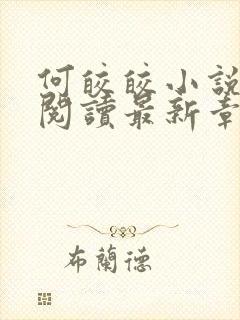 何皎皎小說
閱讀最新章
布蘭德